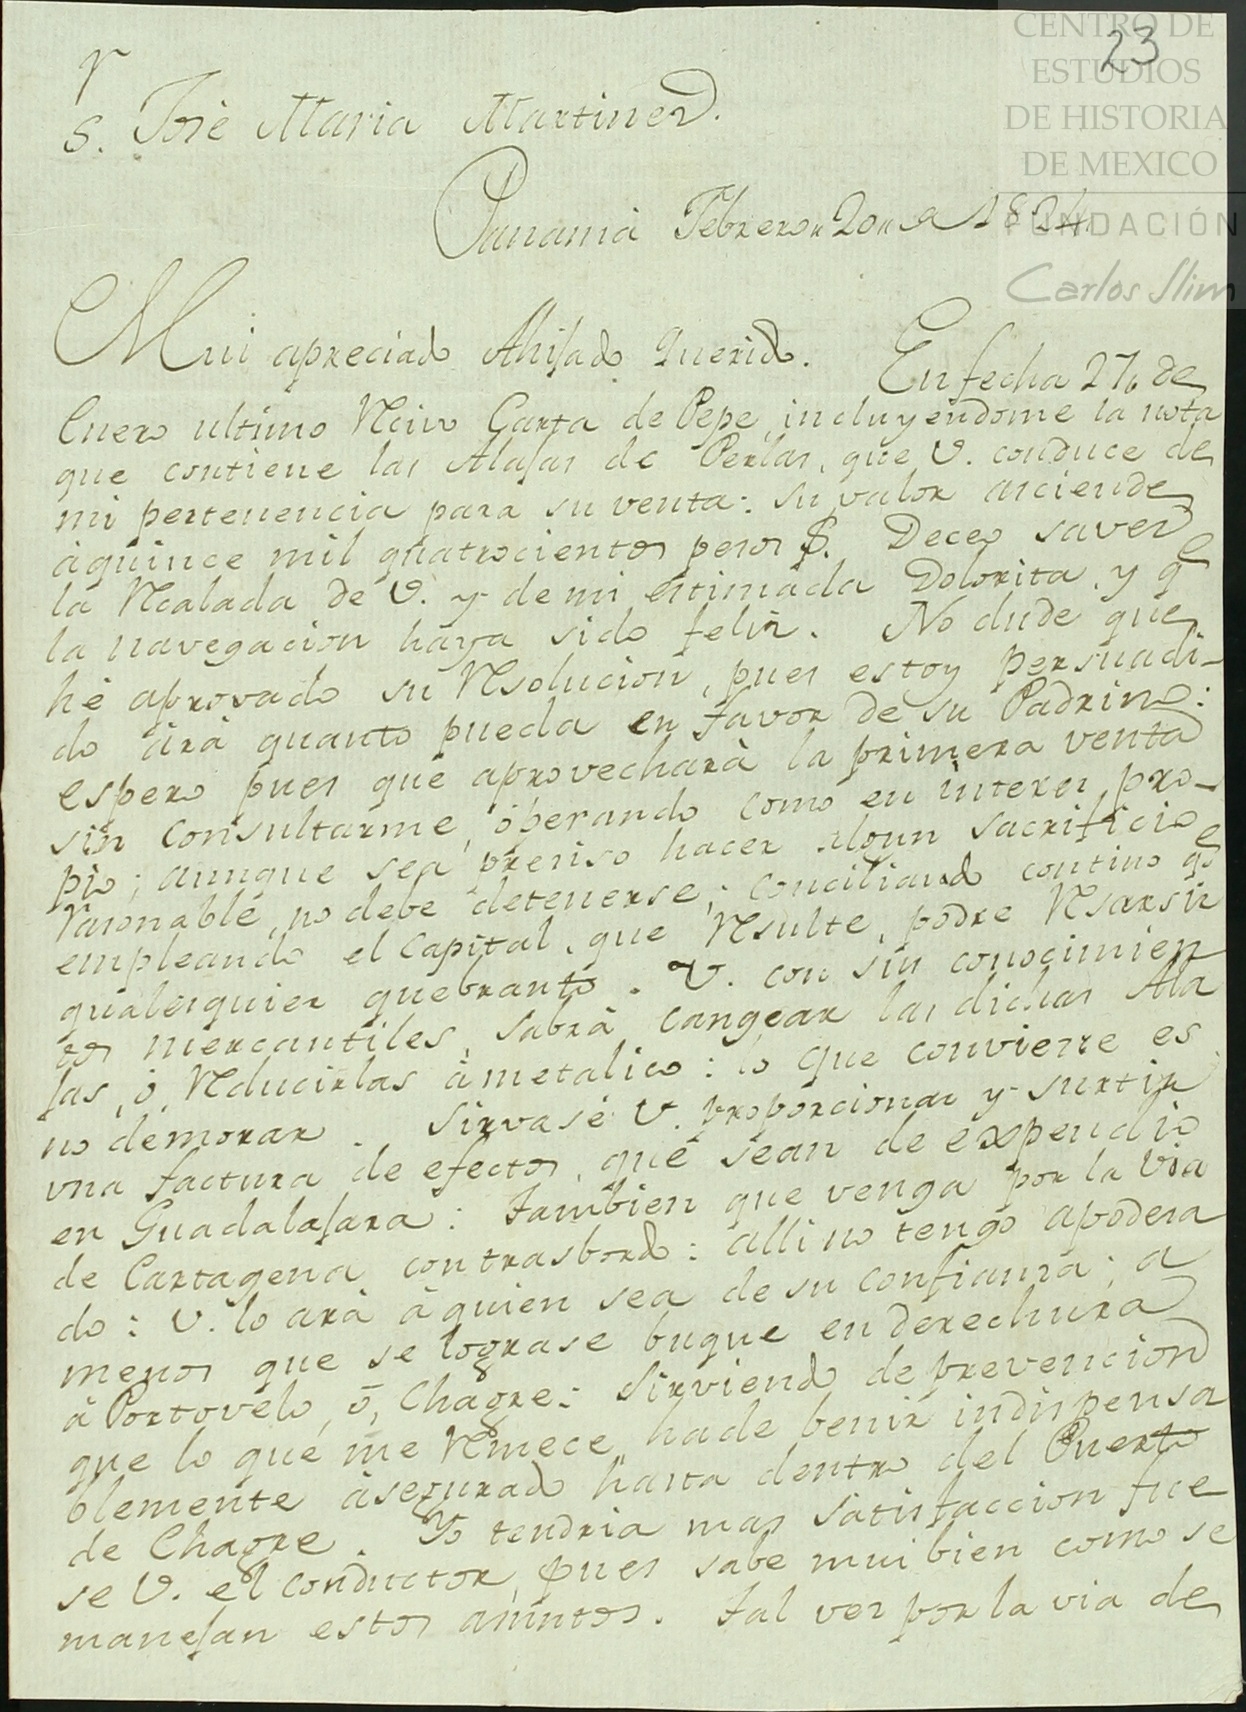 CENTRO DE
ESTUDIOS
DE HISTORIA
DE MEXICO
FUNDACIÓN
Carlos Slim
23
S.r José Maria Martinez.
Panamá Febrero 20 de 1824.
Mui apreciado Ahijado querido. En fecha 27 de
Enero ultimo Recivo Carta de Pepe, incluyendome la nota
que contiene las Alajas de Perlas, que V. conduce de
mi pertenencia para su venta: su valor asciende
à quince mil quatrocientos pesos $. Deceo saver
la Realada de V. y de mi estimada Dolorita, y q.e
la navegacion haya sido feliz. No dude que
hè aprovado su Resolucion, pues estoy persuadi-
do àrà quanto pueda en favor de su Padrino:
espero pues que aprovecharà la primera venta
sin consultarme, òperando como en interes pro-
pio; aunque sea preciso hacer algun sacrificio
Rasonable, no debe detenerse; conciliando contino q.e
empleando el Capital, que Resulte, podre Resarsir
qualesquier quebranto. V. con sus conocimien
tos mercantiles, sabrà cangear las dichas Ala
jas, ò Reducirlas à metalico: lo que conviene es
no demorar. Sirvase V. proporcionar y surtir
vna factura de efectos, que sean de expendio
en Guadalajara: tambien que venga por la Via
de Cartagena con trasbordo: alli no tengo apodera
do: V. lo arà à quien sea de su confianza; a
menos que se lograse buque en derechura
à Portovelo, ò, Chagre: Sirviendo de prevencion
que lo que me Remece, hade benir indispensa
blemente àsegurado hasta dentro del Puerto
de Chagre. Yo tendria mas satisfaccion fue
se V. el conductor, pues sabe mui bien como se
manejan estos asuntos. Tal ves por la via de